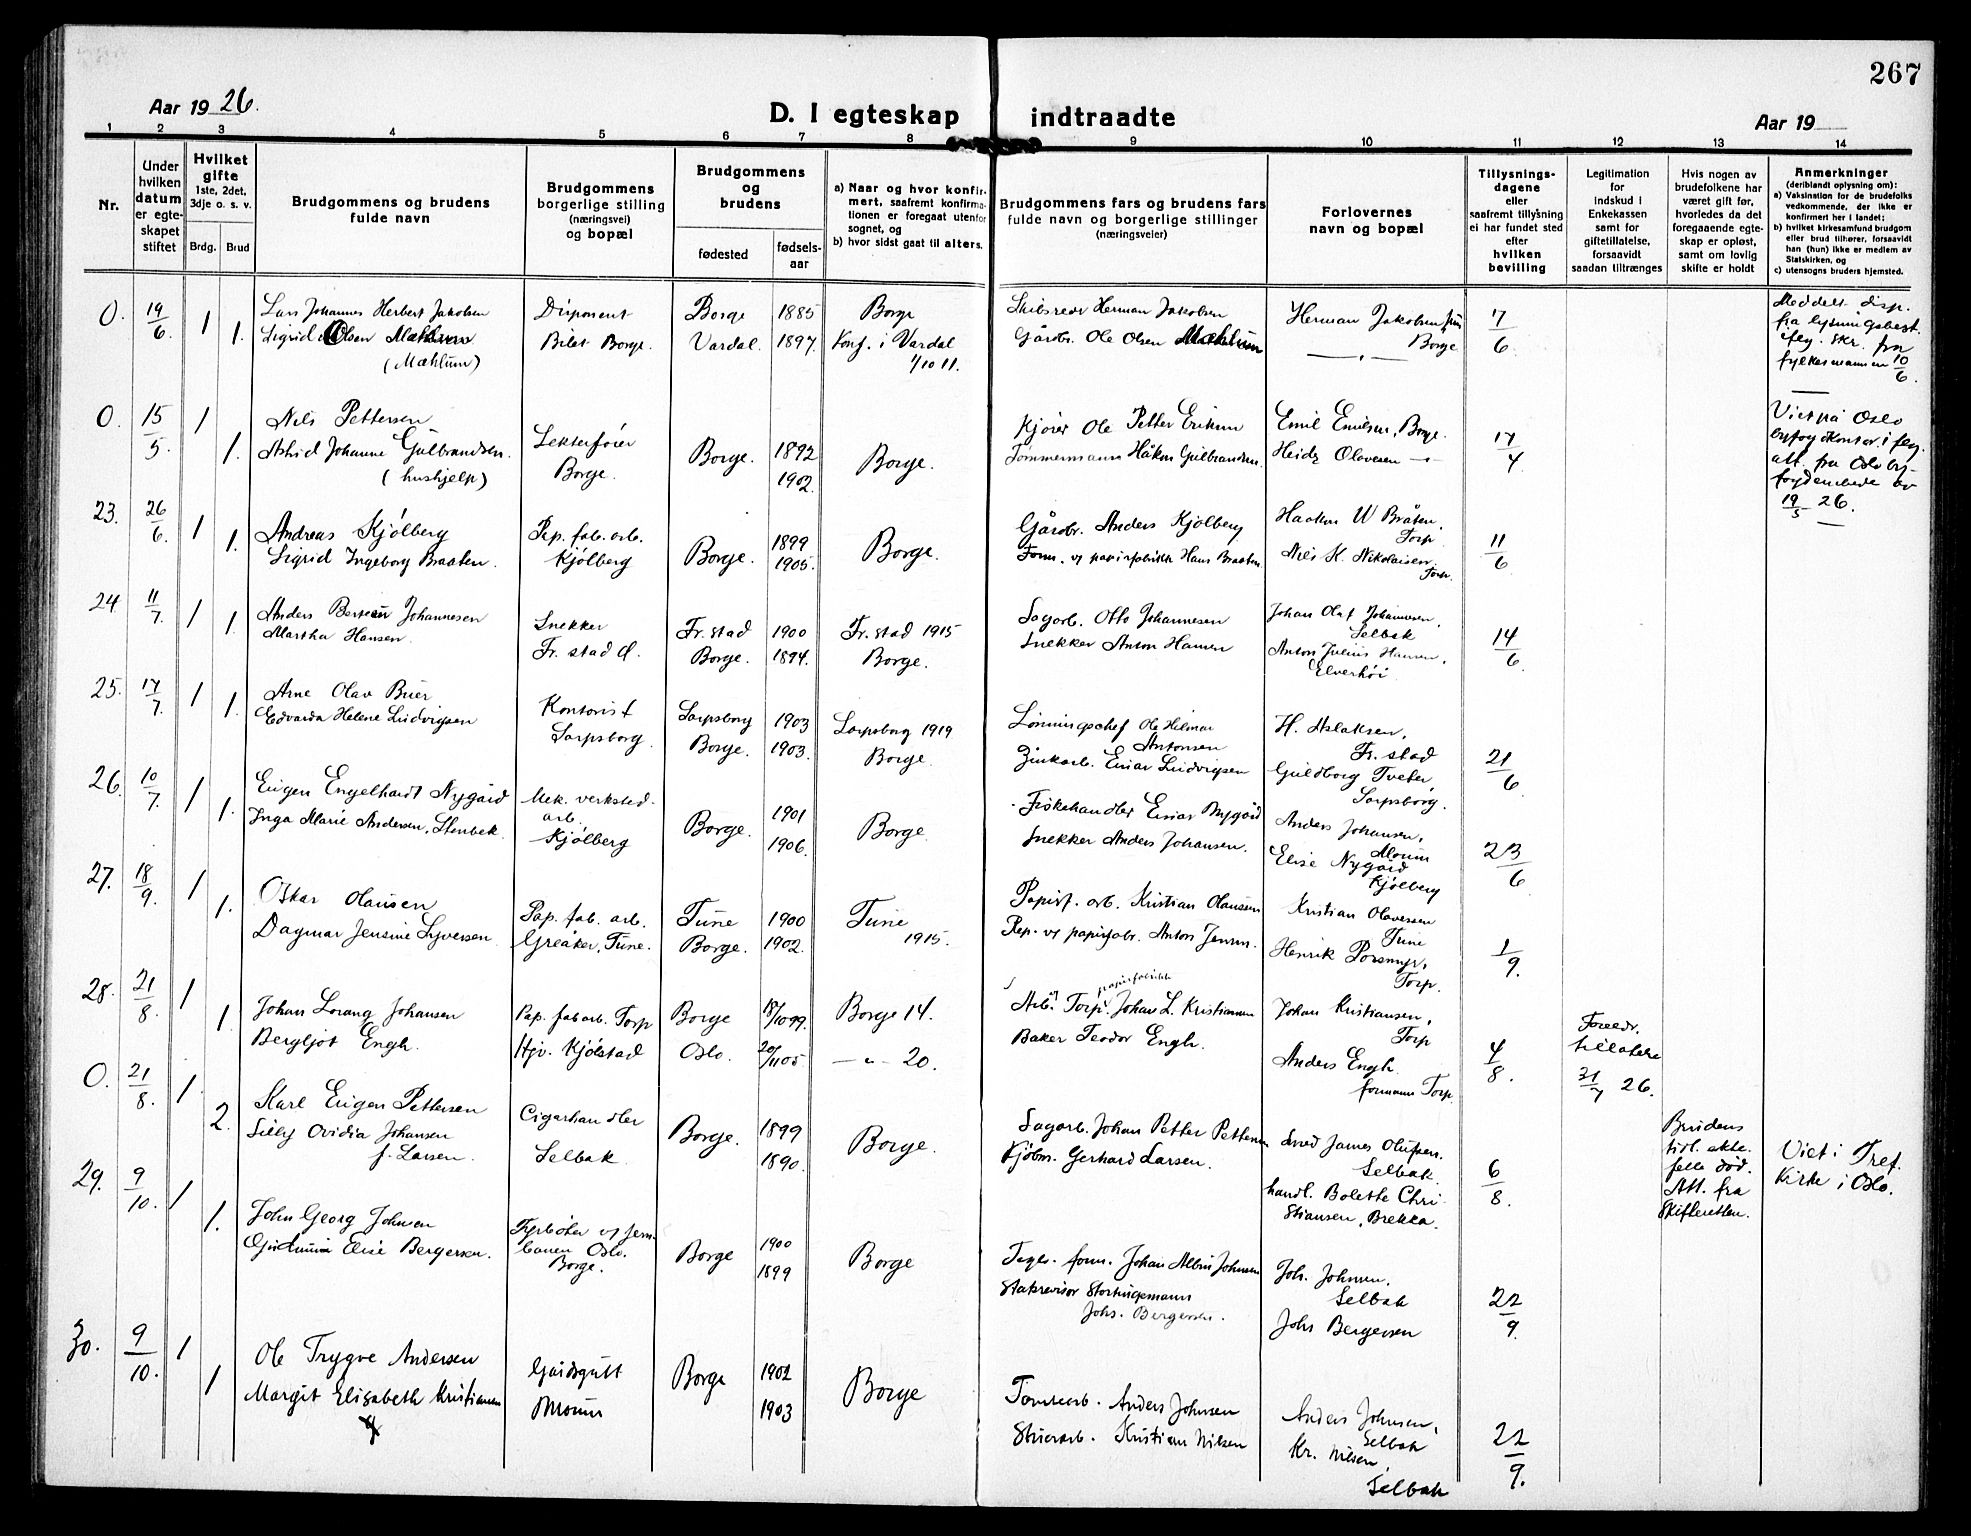 267
Aar 1926.
D. I egteskap indtraadte
Aar 19
1 2 3 4 5 6 7 8 9 10 11 12 13 14
Nr.
Under hvilken datum er egteskapet stiftet
Hvilket gifte
1ste, 2det, 3dje o. s. v.
Brdg. Brud
Brudgommens og brudens fulde navn
Brudgommens borgerlige stilling (næringsvei) og bopæl
Brudgommens og brudens
fødested
fødsels-aar
a) Naar og hvor konfirmert, saafremt konfirmationen er foregaat utenfor sognet, og
b) hvor sidst gaat til alters.
Brudgommens fars og brudens fars fulde navn og borgerlige stillinger (næringsveier)
Forlovernes navn og bopæl
Tillysningsdagene eller saafremt tillysning ei har fundet sted efter hvilken bevilling
Legitimation for indskud i Enkekassen samt for giftetillatelse, forsaavidt saadan tiltrænges
Hvis nogen av brudefolkene har været gift før, hvorledes da det foregaaende egteskap er opløst, samt om lovlig skifte er holdt
Anmerkninger
(deriblandt oplysning om):
a) Vaksination for de brudefolks vedkommende, der ikke er konfirmert her i landet;
b) hvilket kirkesamfund brudgom eller brud tilhører, forsaavidt han (hun) ikke er medlem av Statskirken, og
c) utensogns bruders hjemsted.
0. 19/6 1 1. Lars Johannes Herbert Jakobsen
Sigrid Olsen Mæhlum
(Mæhlum)
Disponent
Bilet Borge.
Borge 1885 Borge
Vardal. 1897. Konf. i Vardal
1/10 11.
Skibsreder Herman Jakobsen
Gårdbr. Ole Olsen Mæhlum
Herman Jakobsen jun
Borge
7/6
Meddelt disp.
fra lysningsbest.
iflg. skr. fra
fylkesmannen 10/6.
0. 15/5. 1 1. Nils Pettersen
Astrid Johanne Gulbrandsen.
(hushjelp)
Lekterfører
Borge.
Borge. 1892
1902.
Borge.
Kjører Ole Petter Eriksen
Tømmermann Håkon Gulbrandsen.
Emil Emilsen, Borge.
Heidz Olavesen
17/4
Viet på Oslo
byfogdkontor, iflg.
att. fra Oslo by-
fogdembede av
19/5 26.
23. 26/6. 1 1. Andreas Kjølberg
Sigrid Ingeborg Braaten.
Pap. fab. arb.
Kjølberg
Borge. 1899
1905.
Borge.
Gårdbr. Anders Kjølberg
Form. v papirfabrikk Hans Braaten
Haakon W Bråten.
Torp
Nils H. Nikolaisen.
Torp.
11/6
24 11/7. 1 1. Anders Berteau Johannesen
Martha Hansen.
Snekker
Fr. stad d.
Fr. stad 1900 Fr. stad 1915
Borge. 1894. Borge.
Sagarb. Otto Johannesen
Snekker Anton Hansen
Johan Olaf Johannesen,
Selbak
Anton Julius Hansen,
Elverhøi
14/6.
25. 17/7. 1 1. Arne Olav Buer
Edvarda Helene Ludvigsen
Kontorist
Sarpsborg.
Sarpsborg 1903 Sarpsborg 1919
Borge. 1903. Borge.
Lønningschef Ole Hilmar
Antonsen
Zinkarb. Einar Ludvigsen
H. Aslaksen,
Fr. stad
Guldborg Tveter,
Sarpsborg.
21/6
26. 10/7. 1 1. Eugen Engelhardt Nygård
Inga Marie Andersen, Stenbek.
Mek. verksted.
arb.
Kjølberg
Borge. 1901
1906.
Borge.
Fiskehandler Einar Nygård
Snekker Anders Johansen.
Anders Johansen,
Moum
Elise Nygård
Kjølberg
23/6
27. 18/9. 1 1. Oskar Olausen
Dagmar Jensine Syversen.
Pap. fab. arb.
Greåker, Tune.
Tune 1900 Tune
Borge. 1902. 1915.
Papirf. arb. Kristian Olausen
Rep. v papirfabr. Anton Jensen.
Kristian Olavessen
Tune
Henrik Porsmyr,
Torp.
1/9.
28. 21/8. 1 1. Johan Lorang Johansen
Bergljot Engh.
Pap. fab arb. Torp
Hjv. Kjølstad
Borge 18/10 99. Borge 14.
Oslo. 20/11 05 — " — 20.
papirfabrikk
Arb. v Torp Johan L. Kristiansen
Baker Teodor Engh.
Johan Kristiansen,
Torp
Anders Engh.
formann Torp.
4/8.
Foreldr.
tillatelse
31/7 26.
0. 21/8. 1. 2. Karl Eugen Pettersen
Silly Ovidia Johansen
f. Larsen.
Cigarhandler
Selbak.
Borge. 1899
1890.
Borge.
Sagarb. Johan Petter Pettersen
Kjøbm. Gerhard Larsen.
Smed James Olufsen.
Selbak.
handl. Bolette Chri-
stiansen, Brekka.
6/8.
Brudens
tidl. ekte-
felle død.
Att. fra
Skifteretten.
Viet i Tref.
Kirke i Oslo.
29. 9/10. 1 1. John Georg Johnsen
Gudrunn Elise Bergersen.
Fyrbøter v jern-
banen Oslo.
Borge.
Borge 1900
1899
Borge
Teglv. form. Johan Albin Johnsen
Statsrevisor Stortingsmann
Johs. Bergersen.
Joh. Johnsen.
Selbak
Johs Bergersen
22/9.
30. 9/10. 1 1 Ole Trygve Andersen
Margit Elisabeth Kristiansen
Gårdsgutt
Moum
Borge 1902
1903
Borge
Tomtearb. Anders Johnsen
Stuerarb. Kristian Nilsen
Anders Johnsen,
Selbak
Kr. Nilsen
Selbak
22/9.